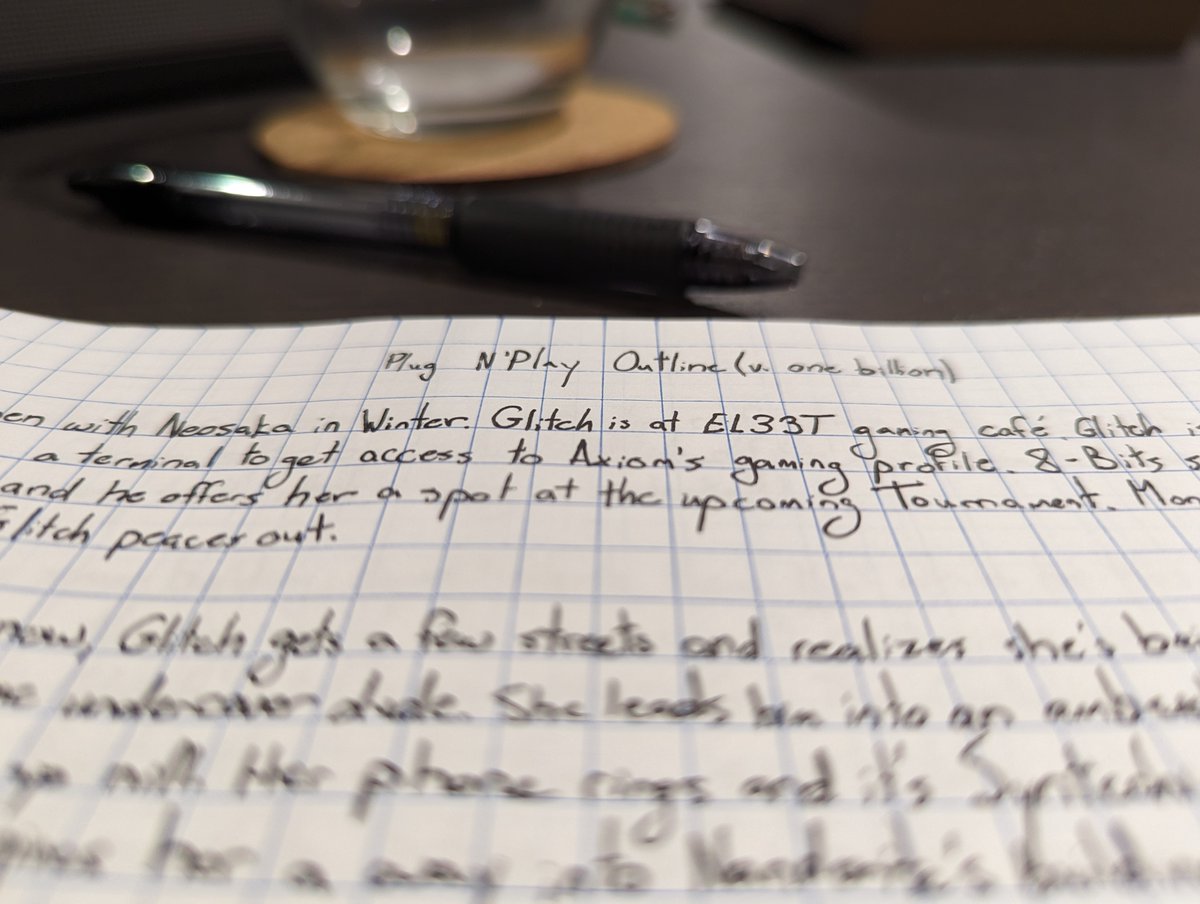 Plug N'Play Outline (v. one billion)
en with Neosaka in Winter. Glitch is at EL33T gaming café. Glitch i
a terminal to get access to Axiom's gaming profile. 8-Bits s
and he offers her a spot at the upcoming Tournament. Mon
Glitch peaces out.
now, Glitch gets a few streets and realizes she's b
dude. She leads him into an
with Her phone rings and it's
her a way into building